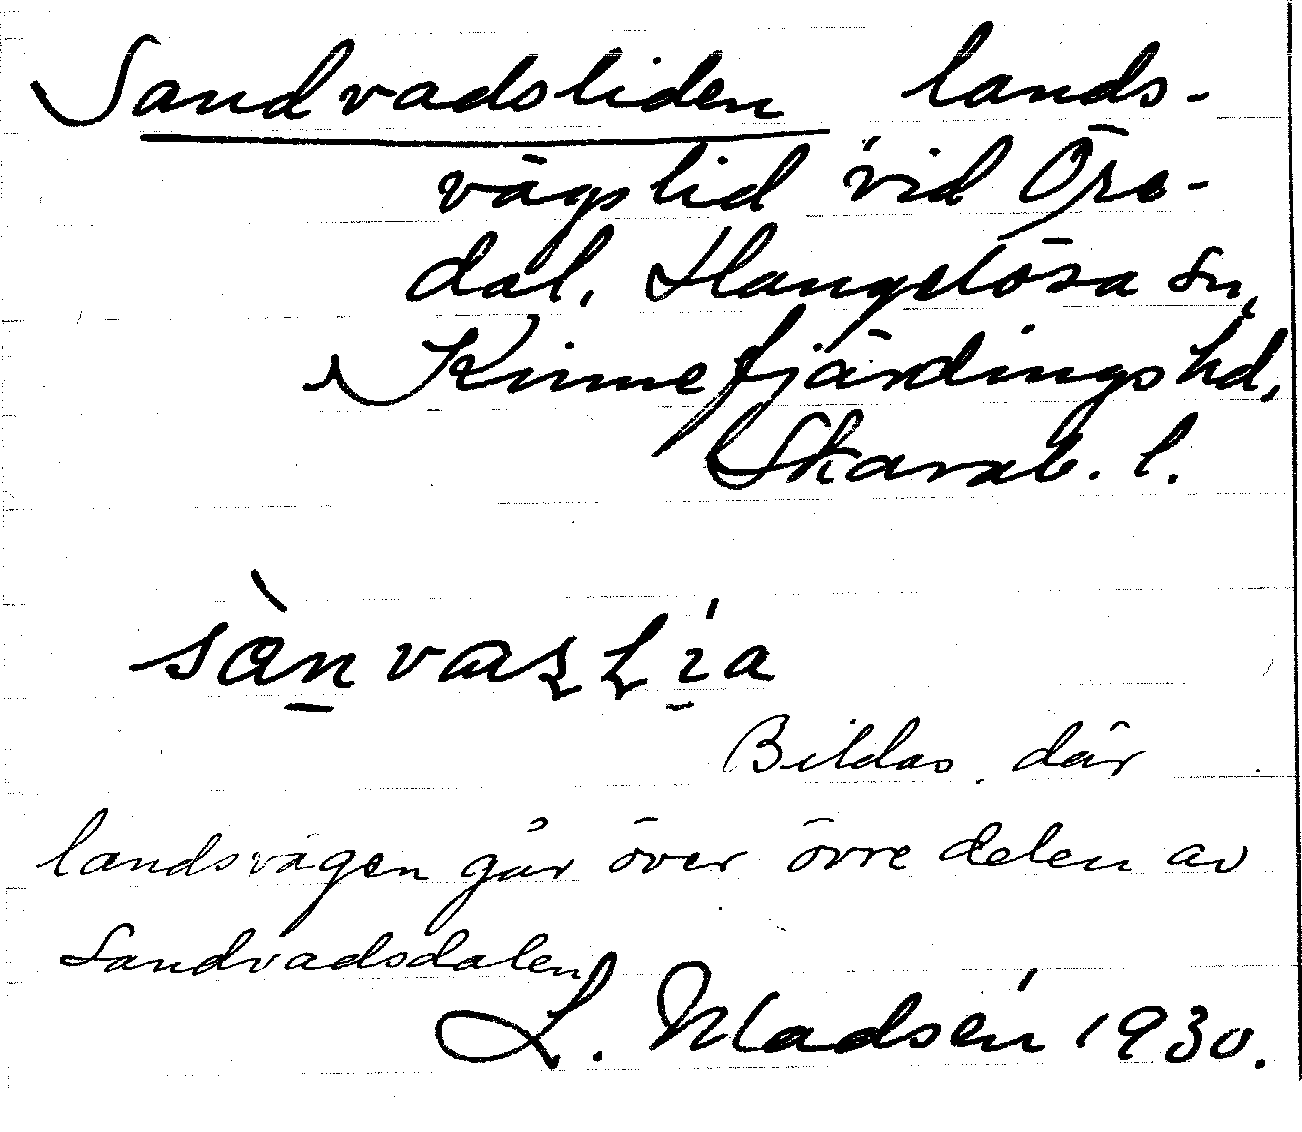 Sandvadsliden lands-
vägslid vid Öre-
dal. Hangelösa sn,
Kinnefjärdings hd,
Skarab. l.
Bildas där
landsvägen går över övre delen av
Sandvadsdalen
L. Madsén 1930.